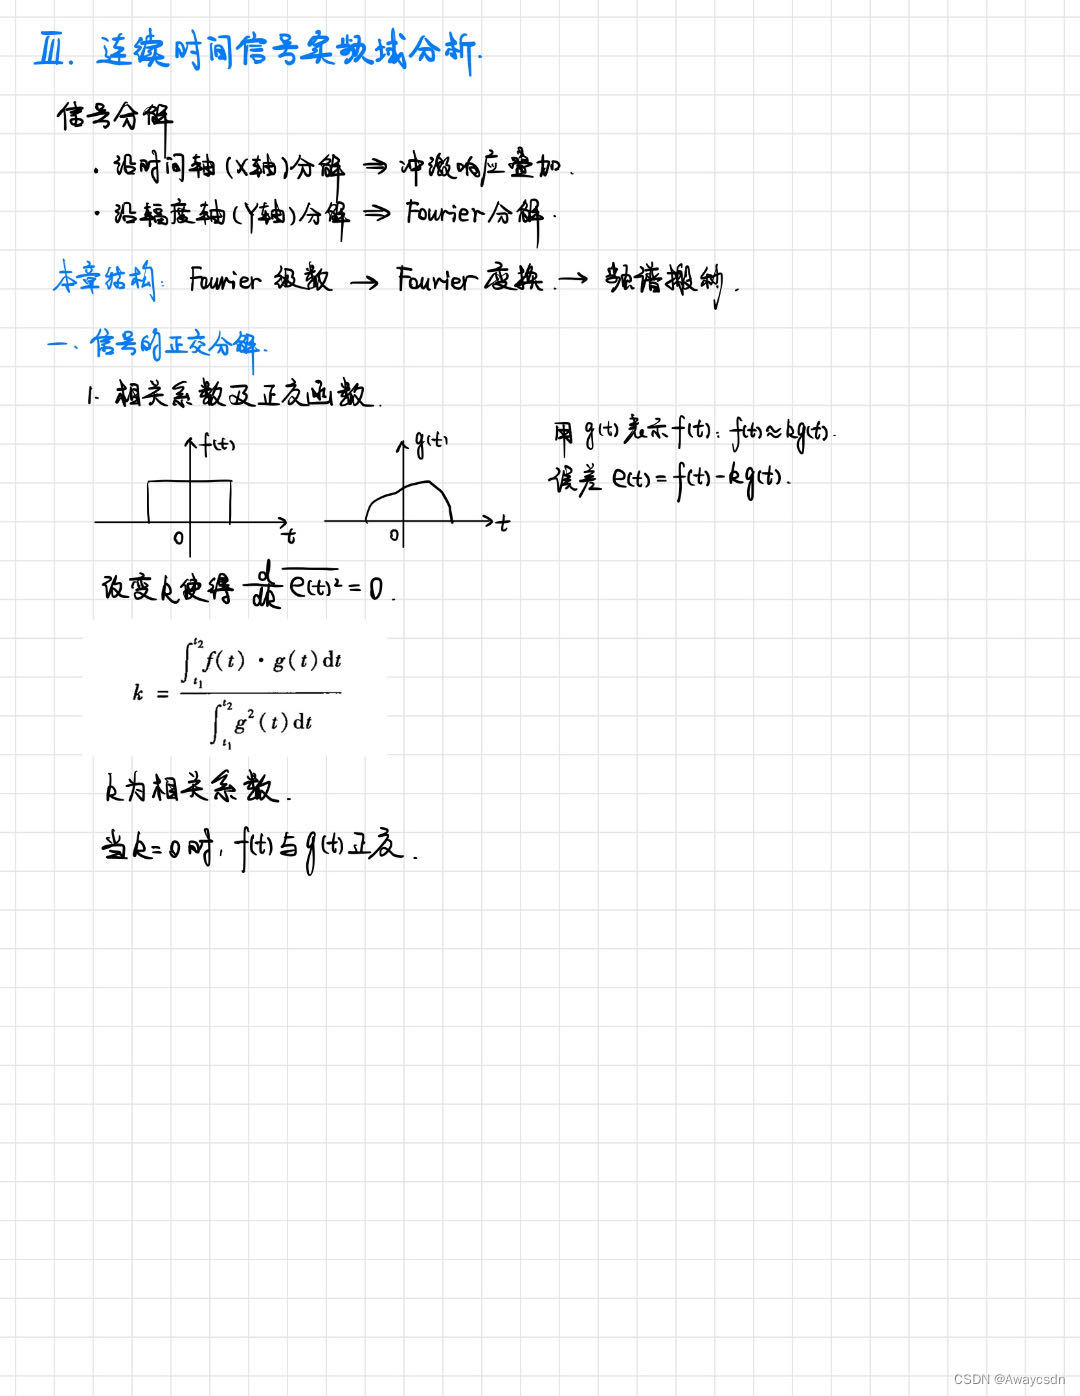 Ⅲ. 连续时间信号实频域分析.
信号分解
· 沿时间轴(X轴)分解 ⇒ 冲激响应叠加.
· 沿幅度轴(Y轴)分解 ⇒ Fourier分解.
本章结构: Fourier 级数 → Fourier 变换. → 频谱搬移.
一、信号的正交分解.
1. 相关系数及正交函数.
f(t)
0
t
g(t)
0
t
用 g(t) 表示 f(t): f(t)≈kg(t).
误差 e(t)=f(t)-kg(t).
改变k使得 d/dk \overline{e(t)²} = 0.
k = ∫_{t₁}^{t₂} f(t)·g(t)dt / ∫_{t₁}^{t₂} g²(t)dt
k为相关系数.
当k=0时, f(t)与g(t)正交.
CSDN @Awaycsdn